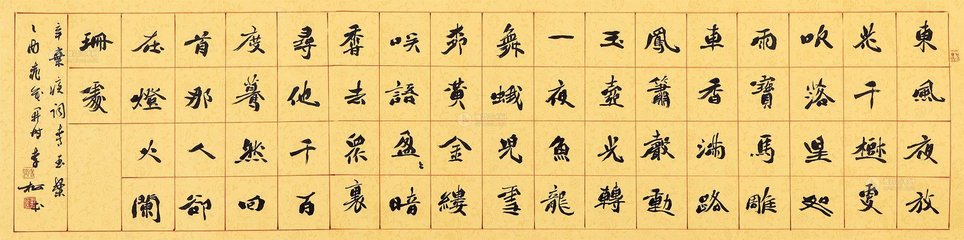 東風夜放
花千樹更
吹落星如
雨寶馬雕
車香滿路
鳳簫聲動
玉壺光轉
一夜魚龍
舞蛾兒雪
茆黃金縷
咲語盈々暗
香去眾裏
尋他千百
度驀然回
首那人卻
在燈火闌
珊處
辛棄疾詞青玉案
李松